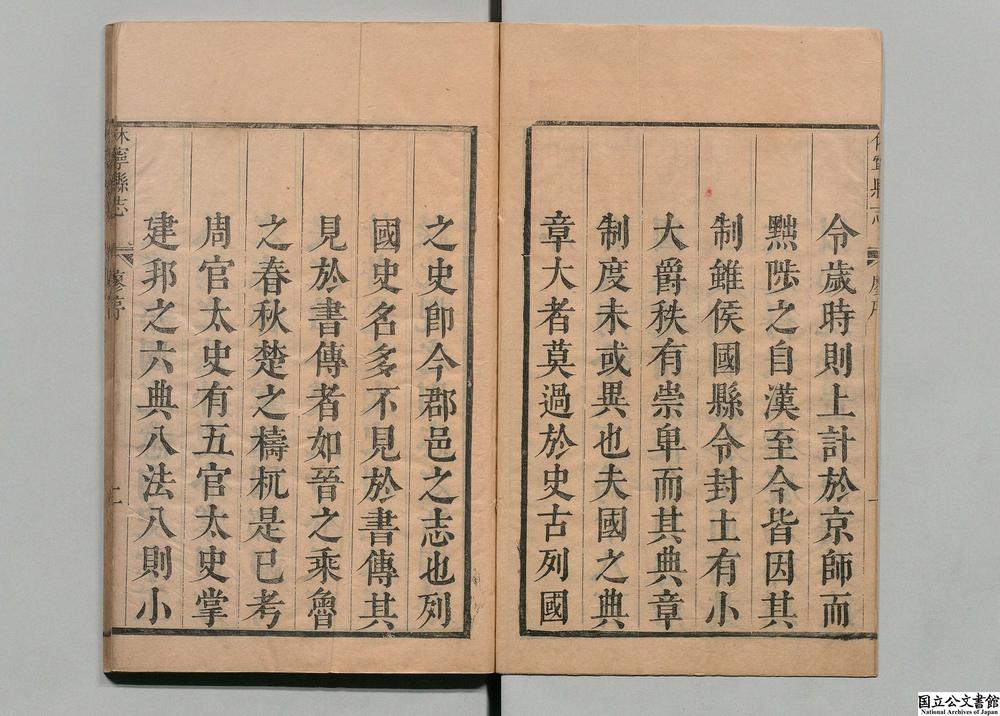 令歲時則上計於京師而
黜陟之自漢至今皆因其
制雖侯國縣令封土有小
大爵秩有崇卑而其典章
制度未或異也夫國之典
章大者莫過於史古列國
之史卽今郡邑之志也列
國史名多不見於書傳其
見於書傳者如晉之乘魯
之春秋楚之檮杌是已考
周官太史有五官太史掌
建邦之六典八法八則小
休寧縣志
廖序
国立公文書館
National Archives of Japan